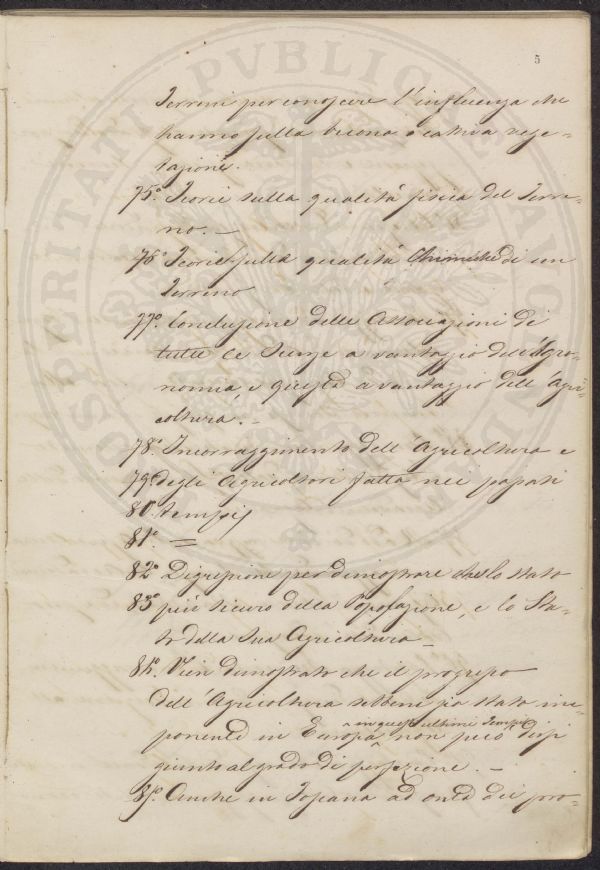 5
Terreni per conoscere l'influenza che
hanno sulla buona o cattiva vege-
tazione.
75.° Teorie sulla qualità fisica del Terre-
no. —
76.° Teorie sulla qualità Chimiche di un
Terreno
77.° Conclusione delle Associazioni di
tutte le Scienze a vantaggio dell'Agro-
nomia, e questa a vantaggio dell'Agri-
coltura. —
78.° Incorraggimento dell'Agricoltura e
79.° degli Agricoltori fatta nei passati
80.° tempi
81.° =
82.° Digressione per dimostrare che lo stato
83.° più sicuro della Popolazione, e lo Sta-
to della Sua Agricoltura —
84.° Vien dimostrato che il progresso
dell'Agricoltura sebbene sia stato im-
ponente in Europa in questi ultimi Tempi non può dirsi
giunto al grado di perfezione. —
85.° Anche in Toscana ad onta dei pro-
PROSPERITATI PUBLICAE AUGENDAE